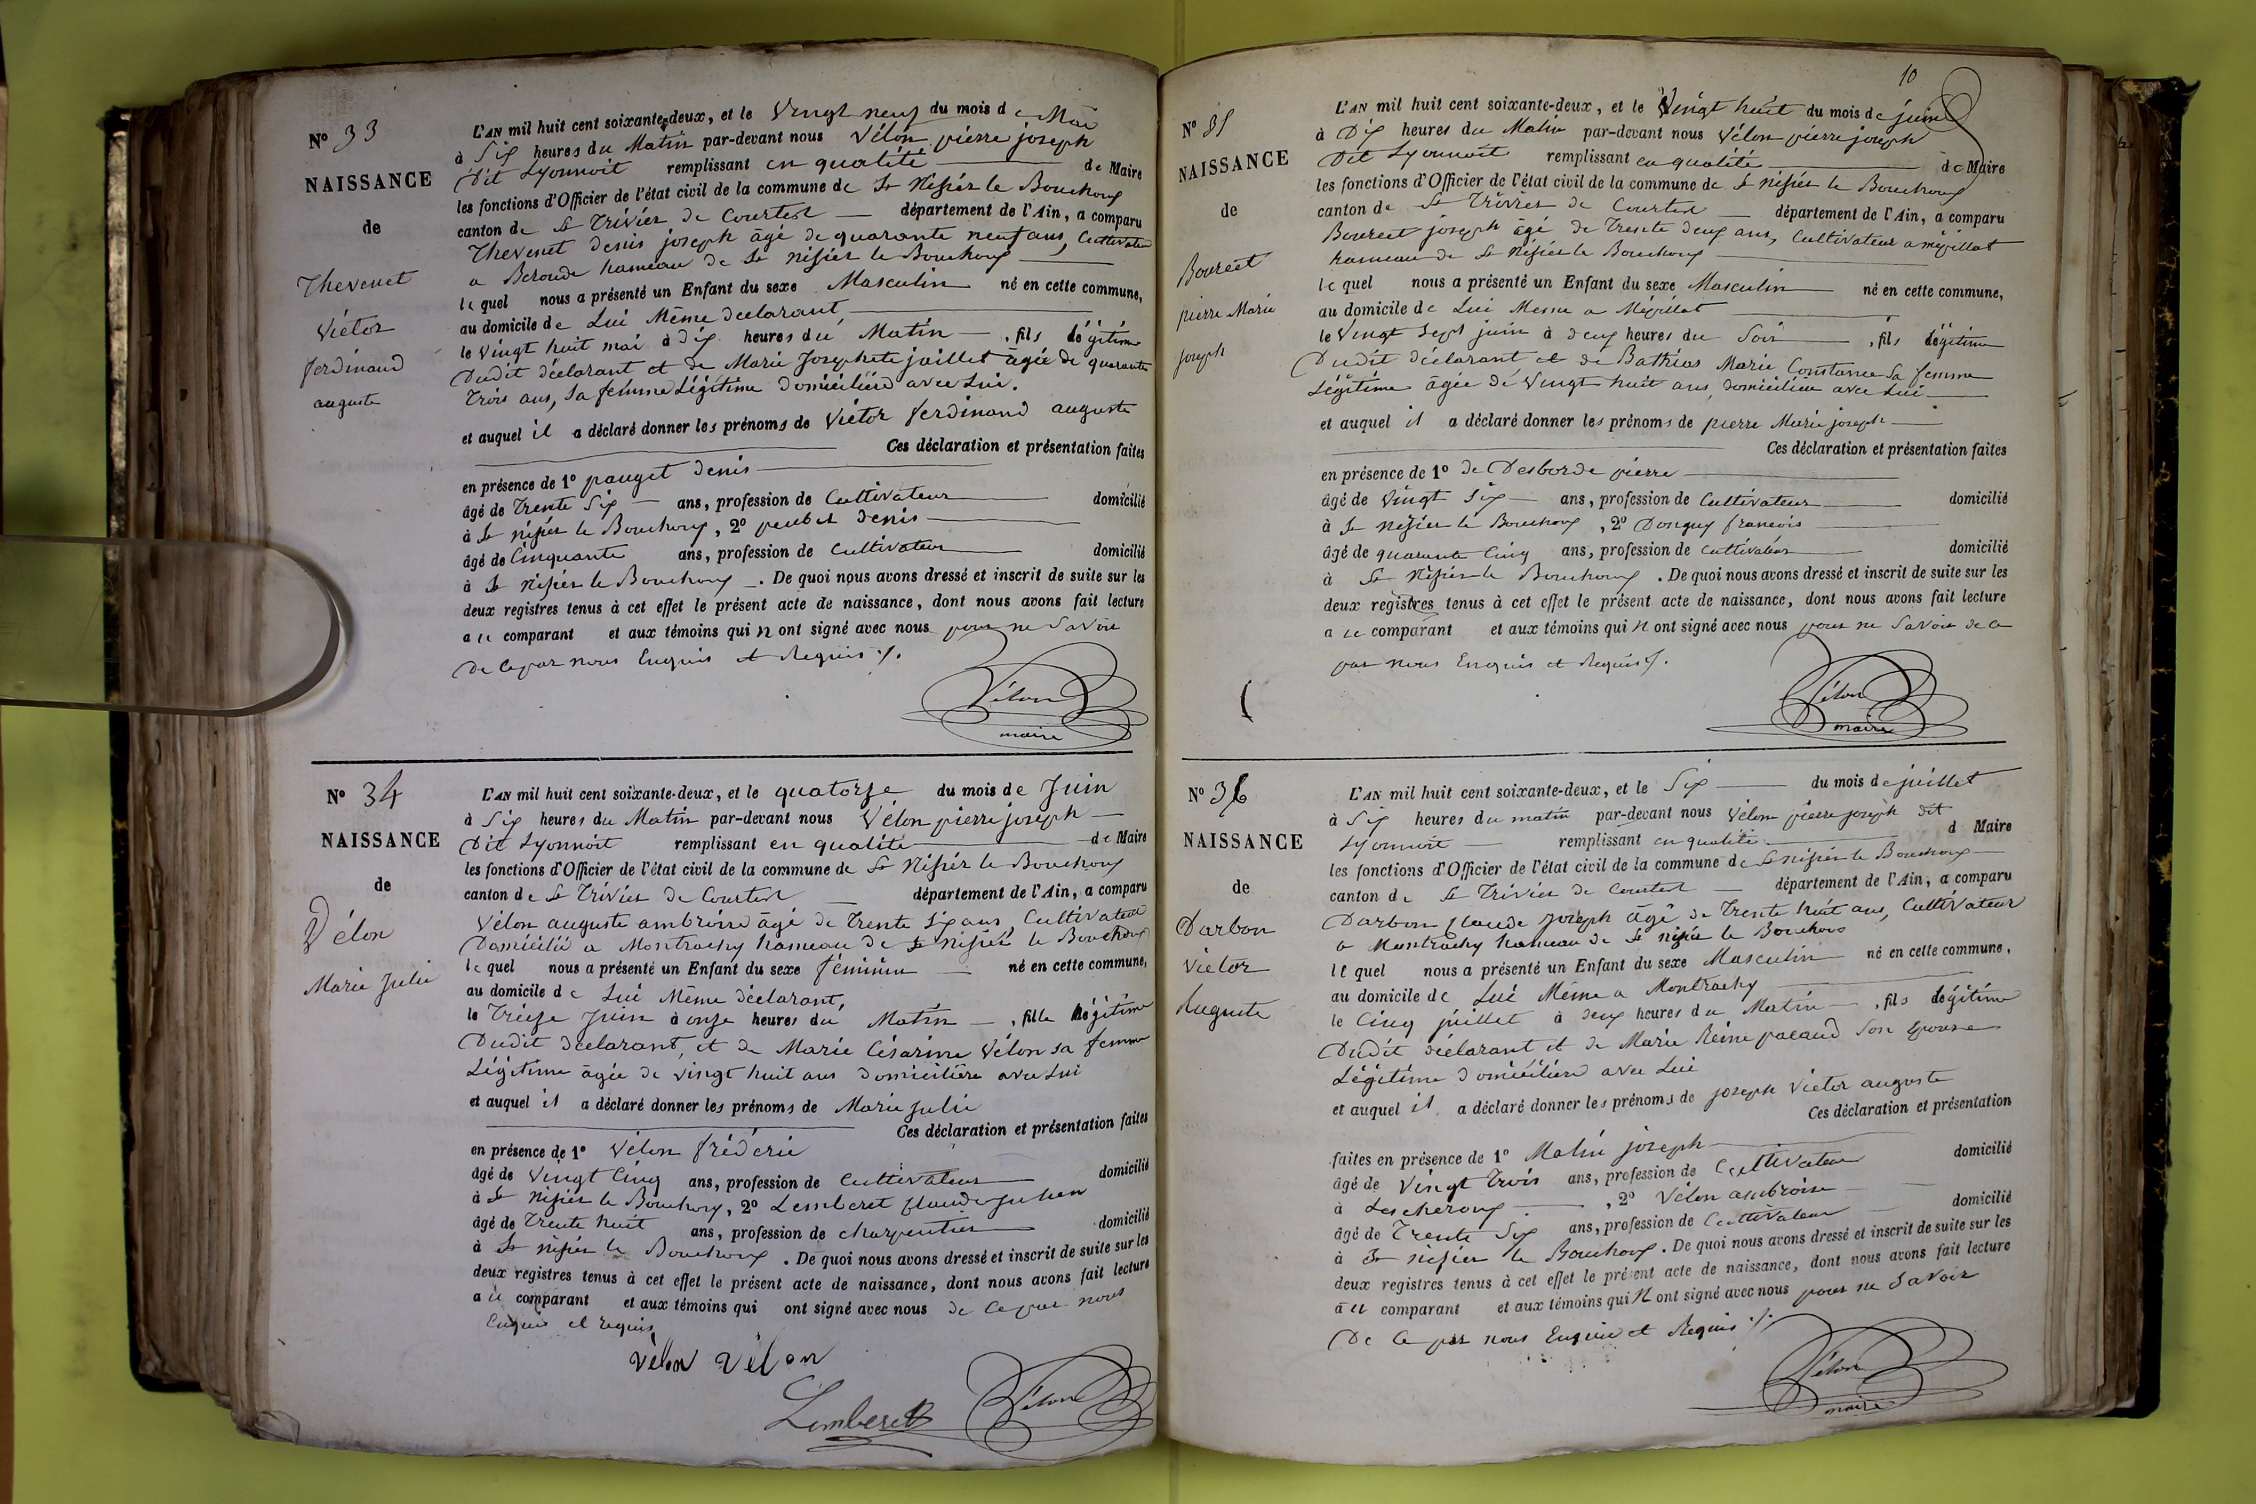 N° 33
NAISSANCE
de
Thevenet
Victor
ferdinand
auguste
L'AN mil huit cent soixante-deux, et le Vingt neuf du mois de Mai
à Six heures du Matin par-devant nous Vélon pierre joseph
Dit Lyonnoit remplissant en qualité de Maire
les fonctions d'Officier de l'état civil de la commune de St Nisier le Bouchoux
canton de St Trivier de Courtes département de l'Ain, a comparu
Thevenet denis joseph âgé de quarante neuf ans, Cultivateur
a hameau de St Nisier le Bouchoux
lequel nous a présenté un Enfant du sexe Masculin né en cette commune,
au domicile de Lui Même déclarant,
le Vingt huit mai à dix heures du Matin, fils légitime
Dudit déclarant et de Marie Josephete jaillet âgée de quarante
trois ans, Sa femme Légitime domicilière avec Lui.
et auquel il a déclaré donner les prénoms de Victor ferdinand auguste
Ces déclaration et présentation faites
en présence de 1° pauget denis
âgé de Trente Six ans, profession de Cultivateur domicilié
à St nisier le Bouchoux, 2° denis
âgé de Cinquante ans, profession de Cultivateur domicilié
à St Nisier le Bouchoux. De quoi nous avons dressé et inscrit de suite sur les
deux registres tenus à cet effet le présent acte de naissance, dont nous avons fait lecture
au comparant et aux témoins qui n ont signé avec nous pour ne Savoir
De Ce par nous Enquis et Requis ./.
Vélon
maire
N° 34
NAISSANCE
de
Vélon
Marie Julie
L'AN mil huit cent soixante-deux, et le quatorze du mois de Juin
à Six heures du Matin par-devant nous Vélon pierre joseph
Dit Lyonnoit remplissant en qualité de Maire
les fonctions d'Officier de l'état civil de la commune de St Nisier le Bouchoux
canton de St Trivier de Courtes département de l'Ain, a comparu
Vélon auguste ambroise âgé de Trente Six ans, Cultivateur
Domicilié a Montrachy hameau de St nisier le Bouchoux
lequel nous a présenté un Enfant du sexe féminin né en cette commune,
au domicile de Lui Même déclarant,
le Treize Juin à onze heures du Matin, fille légitime
Dudit déclarant, et de Marie Césarine Vélon sa femme
Légitime âgée de vingt huit ans domicilière avec Lui
et auquel il a déclaré donner les prénoms de Marie Julie
Ces déclaration et présentation faites
en présence de 1° Vélon fréderic
âgé de Vingt Cinq ans, profession de Cultivateur domicilié
à St nisier le Bouchoux, 2° Lemberet flaude Julien
âgé de Trente huit ans, profession de charpentier domicilié
à St nisier le Bouchoux. De quoi nous avons dressé et inscrit de suite sur les
deux registres tenus à cet effet le présent acte de naissance, dont nous avons fait lecture
au comparant et aux témoins qui ont signé avec nous de Ce par nous
Enquis et requis
Vélon Vélon
Lemberet Vélon
10
N° 35
NAISSANCE
de
Bourcet
pierre Marie
joseph
L'AN mil huit cent soixante-deux, et le Vingt huit du mois de juin
à Dix heures du Matin par-devant nous Vélon pierre joseph
Dit Lyonnoit remplissant en qualité de Maire
les fonctions d'Officier de l'état civil de la commune de St Nisier le Bouchoux
canton de St Trivier de Courtes département de l'Ain, a comparu
Bourcet joseph âgé de Trente deux ans, Cultivateur a mépillat
hameau de St Nisier le Bouchoux
lequel nous a présenté un Enfant du sexe Masculin né en cette commune,
au domicile de Lui Meme a Mépillat
le Vingt Sept juin à deux heures du Soir, fils légitime
Dudit déclarant et de Bathias Marie Constance Sa femme
Légitime âgée de Vingt huit ans, domicilière avec Lui
et auquel il a déclaré donner les prénoms de pierre Marie joseph
Ces déclaration et présentation faites
en présence de 1° de Desborde pierre
âgé de Vingt Six ans, profession de Cultivateur domicilié
à St Nisier le Bouchoux, 2° Donguy francois
âgé de quarante Cinq ans, profession de Cultivateur domicilié
à St Nisier le Bouchoux. De quoi nous avons dressé et inscrit de suite sur les
deux registres tenus à cet effet le présent acte de naissance, dont nous avons fait lecture
au comparant et aux témoins qui n ont signé avec nous pour ne Savoir de ce
par nous Enquis et Requis /.
Vélon
maire
N° 36
NAISSANCE
de
Darbon
Victor
Auguste
L'AN mil huit cent soixante-deux, et le Six du mois de juillet
à Six heures du matin par-devant nous Vélon pierre joseph dit
Lyonnoit remplissant en qualité d Maire
les fonctions d'Officier de l'état civil de la commune de St Nisier le Bouchoux
canton de St Trivier de Courtes département de l'Ain, a comparu
Darbon flaude joseph âgé de Trente huit ans, Cultivateur
a Montrachy hameau de St nisier le Bouchoux
lequel nous a présenté un Enfant du sexe Masculin né en cette commune,
au domicile de Lui Même a Montrachy
le Cinq juillet à deux heures du Matin, fils légitime
Dudit déclarant et de Marie Reine pacaud Son Epouse
Légitime domicilière avec Lui
et auquel il a déclaré donner les prénoms de joseph Victor auguste
Ces déclaration et présentation
faites en présence de 1° Matin joseph domicilié
âgé de Vingt Trois ans, profession de Cultivateur
à Lescheroux, 2° Vélon ambroise
âgé de Trente Six ans, profession de Cultivateur domicilié
à St nisier le Bouchoux. De quoi nous avons dressé et inscrit de suite sur les
deux registres tenus à cet effet le présent acte de naissance, dont nous avons fait lecture
au comparant et aux témoins qui n ont signé avec nous pour ne Savoir
De Ce par nous Enquis et Requis ./.
Vélon
maire